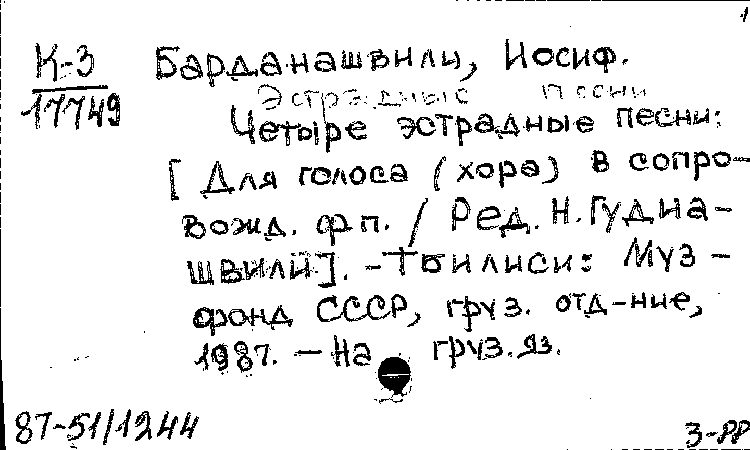 1
К-3 Барданашвили, Иосиф.
17749 Эстрадные песни
Четыре эстрадные песни:
[Для голоса (хора) в сопро-
вожд. ф.п. / Ред. Н. Гудиа-
швили]. - Тбилиси: Муз-
фонд СССР, груз. отд-ние,
1987. - На груз. яз.
87-51/1244 3-РР